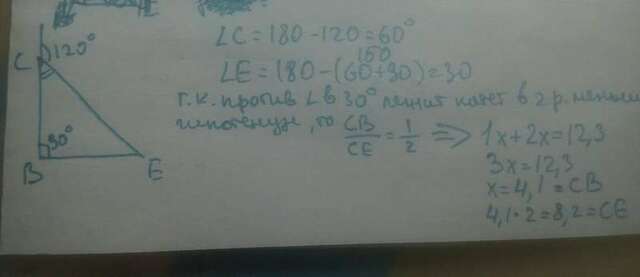 C 120°
90°
B E
∠C = 180 - 120 = 60°
150
∠E = 180 - (60 + 90) = 30
т.к. против ∠ в 30° лежит катет в 2 р. меньш
гипотенузе, то CB/CE = 1/2 ⇒ 1x + 2x = 12,3
3x = 12,3
x = 4,1 = CB
4,1 · 2 = 8,2 = CE